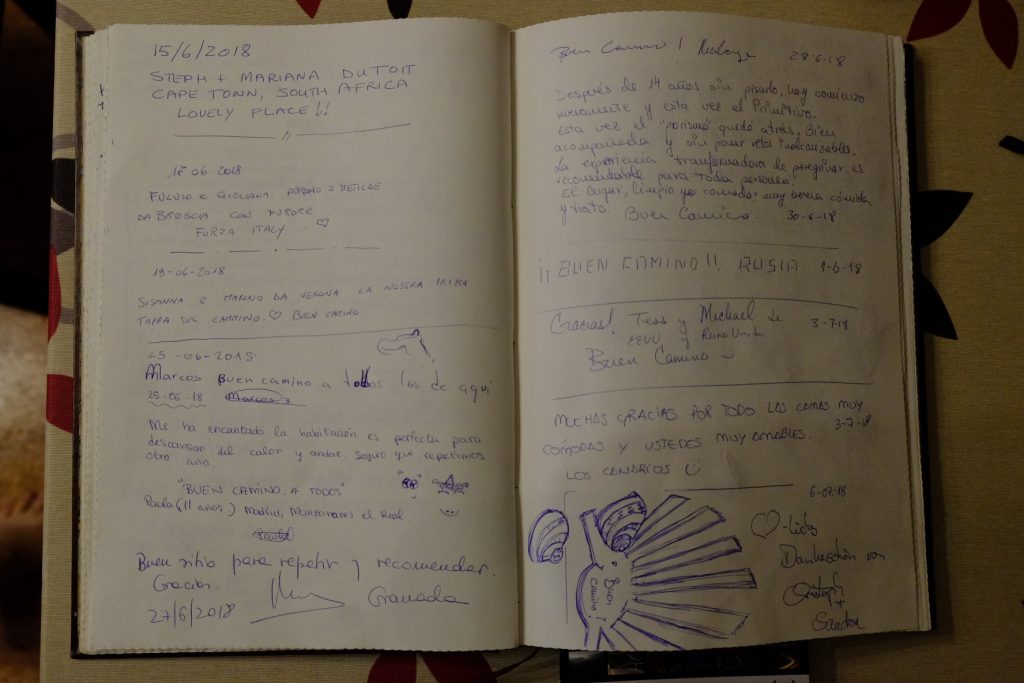 15/6/2018
STEPH + MARIANA DUTOIT
CAPE TOWN, SOUTH AFRICA
LOVELY PLACE!!
17 06 2018
FULVIO E GIULIANA
DA BRESCIA CON FURORE
FORZA ITALY .... ♡
19-06-2018
SUSANNA E MARINO DA VERONA LA NOSTRA PRIMA
TAPPA SUL CAMMINO. ♡ BUEN CAMINO
25-06-2018
Marcos Buen camino a todos los de aqui
25-06-18 Marcos
Me ha encantado la habitación es perfecta para
descansar del calor y andar. Seguro que repetimos
otro año.
"BUEN CAMINO. A TODOS"
Paula (11 años) Madrid, Manzanares el Real
Paula
Buen sitio para repetir y recomendar.
Gracias. Granada
27/6/2018
Buen Camino! 28-6-18
Después de 14 años sin pisarlo, hoy comienzo
nuevamente y esta vez el Primitivo.
Esta vez el quedó atrás. Bien
acompañada y sin poner retos inalcanzables.
La experiencia transformadora de peregrinar es
recomendable para toda persona.
El lugar, limpio y muy buena comida
y trato. Buen Camino. 30-6-18
¡¡ BUEN CAMINO!! RUSIA 1-6-18
Gracias! Tess y Michael de 3-7-18
EEUU y Reino Unido
Buen Camino
MUCHAS GRACIAS POR TODO. LAS CAMAS MUY
CÓMODAS Y USTEDES MUY AMABLES. 3-7-18
LOS CANARIOS
6-07-18
Buen
Camino!
♡-lichs
Dankeschön von
Christoph
+
Sandra